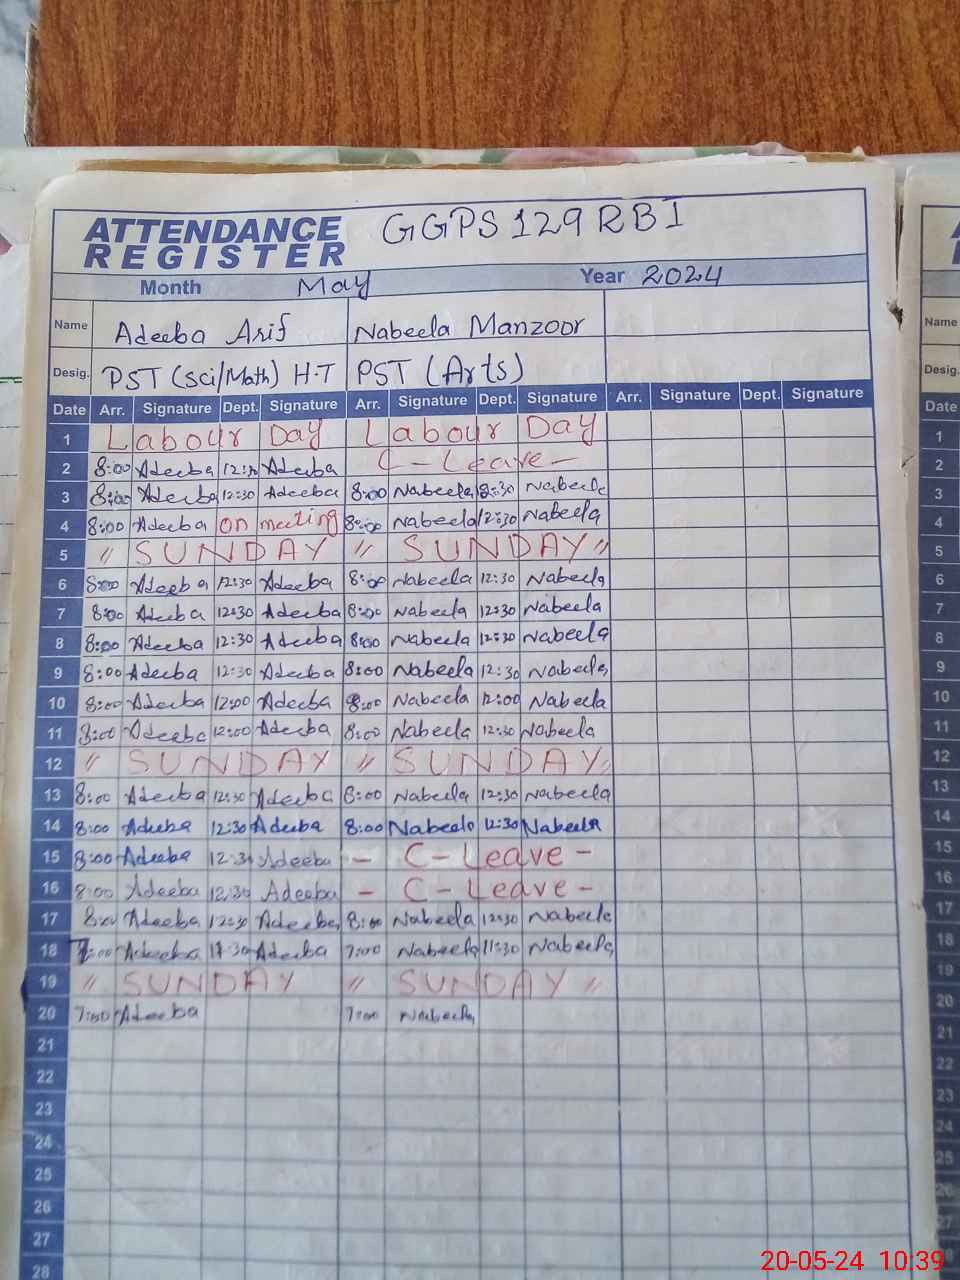 ATTENDANCE REGISTER GGPS 129 RB I
Month May Year 2024
Name Adeeba Arif Nabeela Manzoor
Desig. PST (Sci/Math) H.T PST (Arts)
Date Arr. Signature Dept. Signature Arr. Signature Dept. Signature Arr. Signature Dept. Signature
1 Labour Day Labour Day
2 8:00 Adeeba Adeeba C-Leave-
3 8:00 Adeeba 12:30 Adeeba 8:00 Nabeela Nabeela
4 8:00 Adeeba on meeting 8:00 Nabeela 12:30 Nabeela
5 " SUNDAY " SUNDAY "
6 8:00 Adeeba 12:30 Adeeba 8:00 Nabeela 12:30 Nabeela
7 8:00 Adeeba 12:30 Adeeba 8:00 Nabeela 12:30 Nabeela
8 8:00 Adeeba 12:30 Adeeba 8:00 Nabeela 12:30 Nabeela
9 8:00 Adeeba 12:30 Adeeba 8:00 Nabeela 12:30 Nabeela
10 8:00 Adeeba 12:00 Adeeba 8:00 Nabeela 12:00 Nabeela
11 8:00 Adeeba 12:00 Adeeba 8:00 Nabeela 12:30 Nabeela
12 " SUNDAY " SUNDAY "
13 8:00 Adeeba 12:30 Adeeba 8:00 Nabeela 12:30 Nabeela
14 8:00 Adeeba 12:30 Adeeba 8:00 Nabeela 12:30 Nabeela
15 8:00 Adeeba 12:30 Adeeba - C-Leave -
16 8:00 Adeeba 12:30 Adeeba - C-Leave -
17 8:00 Adeeba 12:30 Adeeba 8:00 Nabeela 12:30 Nabeela
18 7:00 Adeeba 11:30 Adeeba 7:00 Nabeela 11:30 Nabeela
19 " SUNDAY " SUNDAY "
20 7:00 Adeeba 7:00 Nabeela
21
22
23
24
25
26
27
28
Name
Desig.
Date
1
2
3
4
5
6
7
8
9
10
11
12
13
14
15
16
17
18
19
20
21
22
23
24
25
26
27
20-05-24 10:39